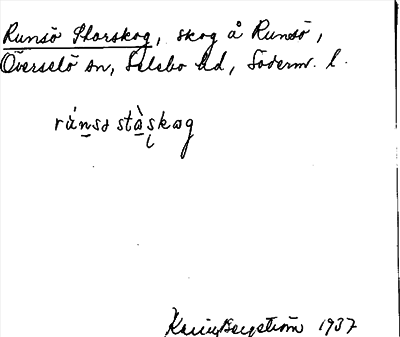 Runsö Storskog, skog å Runsö,
Överselö sn, Selebo hd, Söderm. l.
rúnsɷ stàskɷg
Karin Bergström 1937